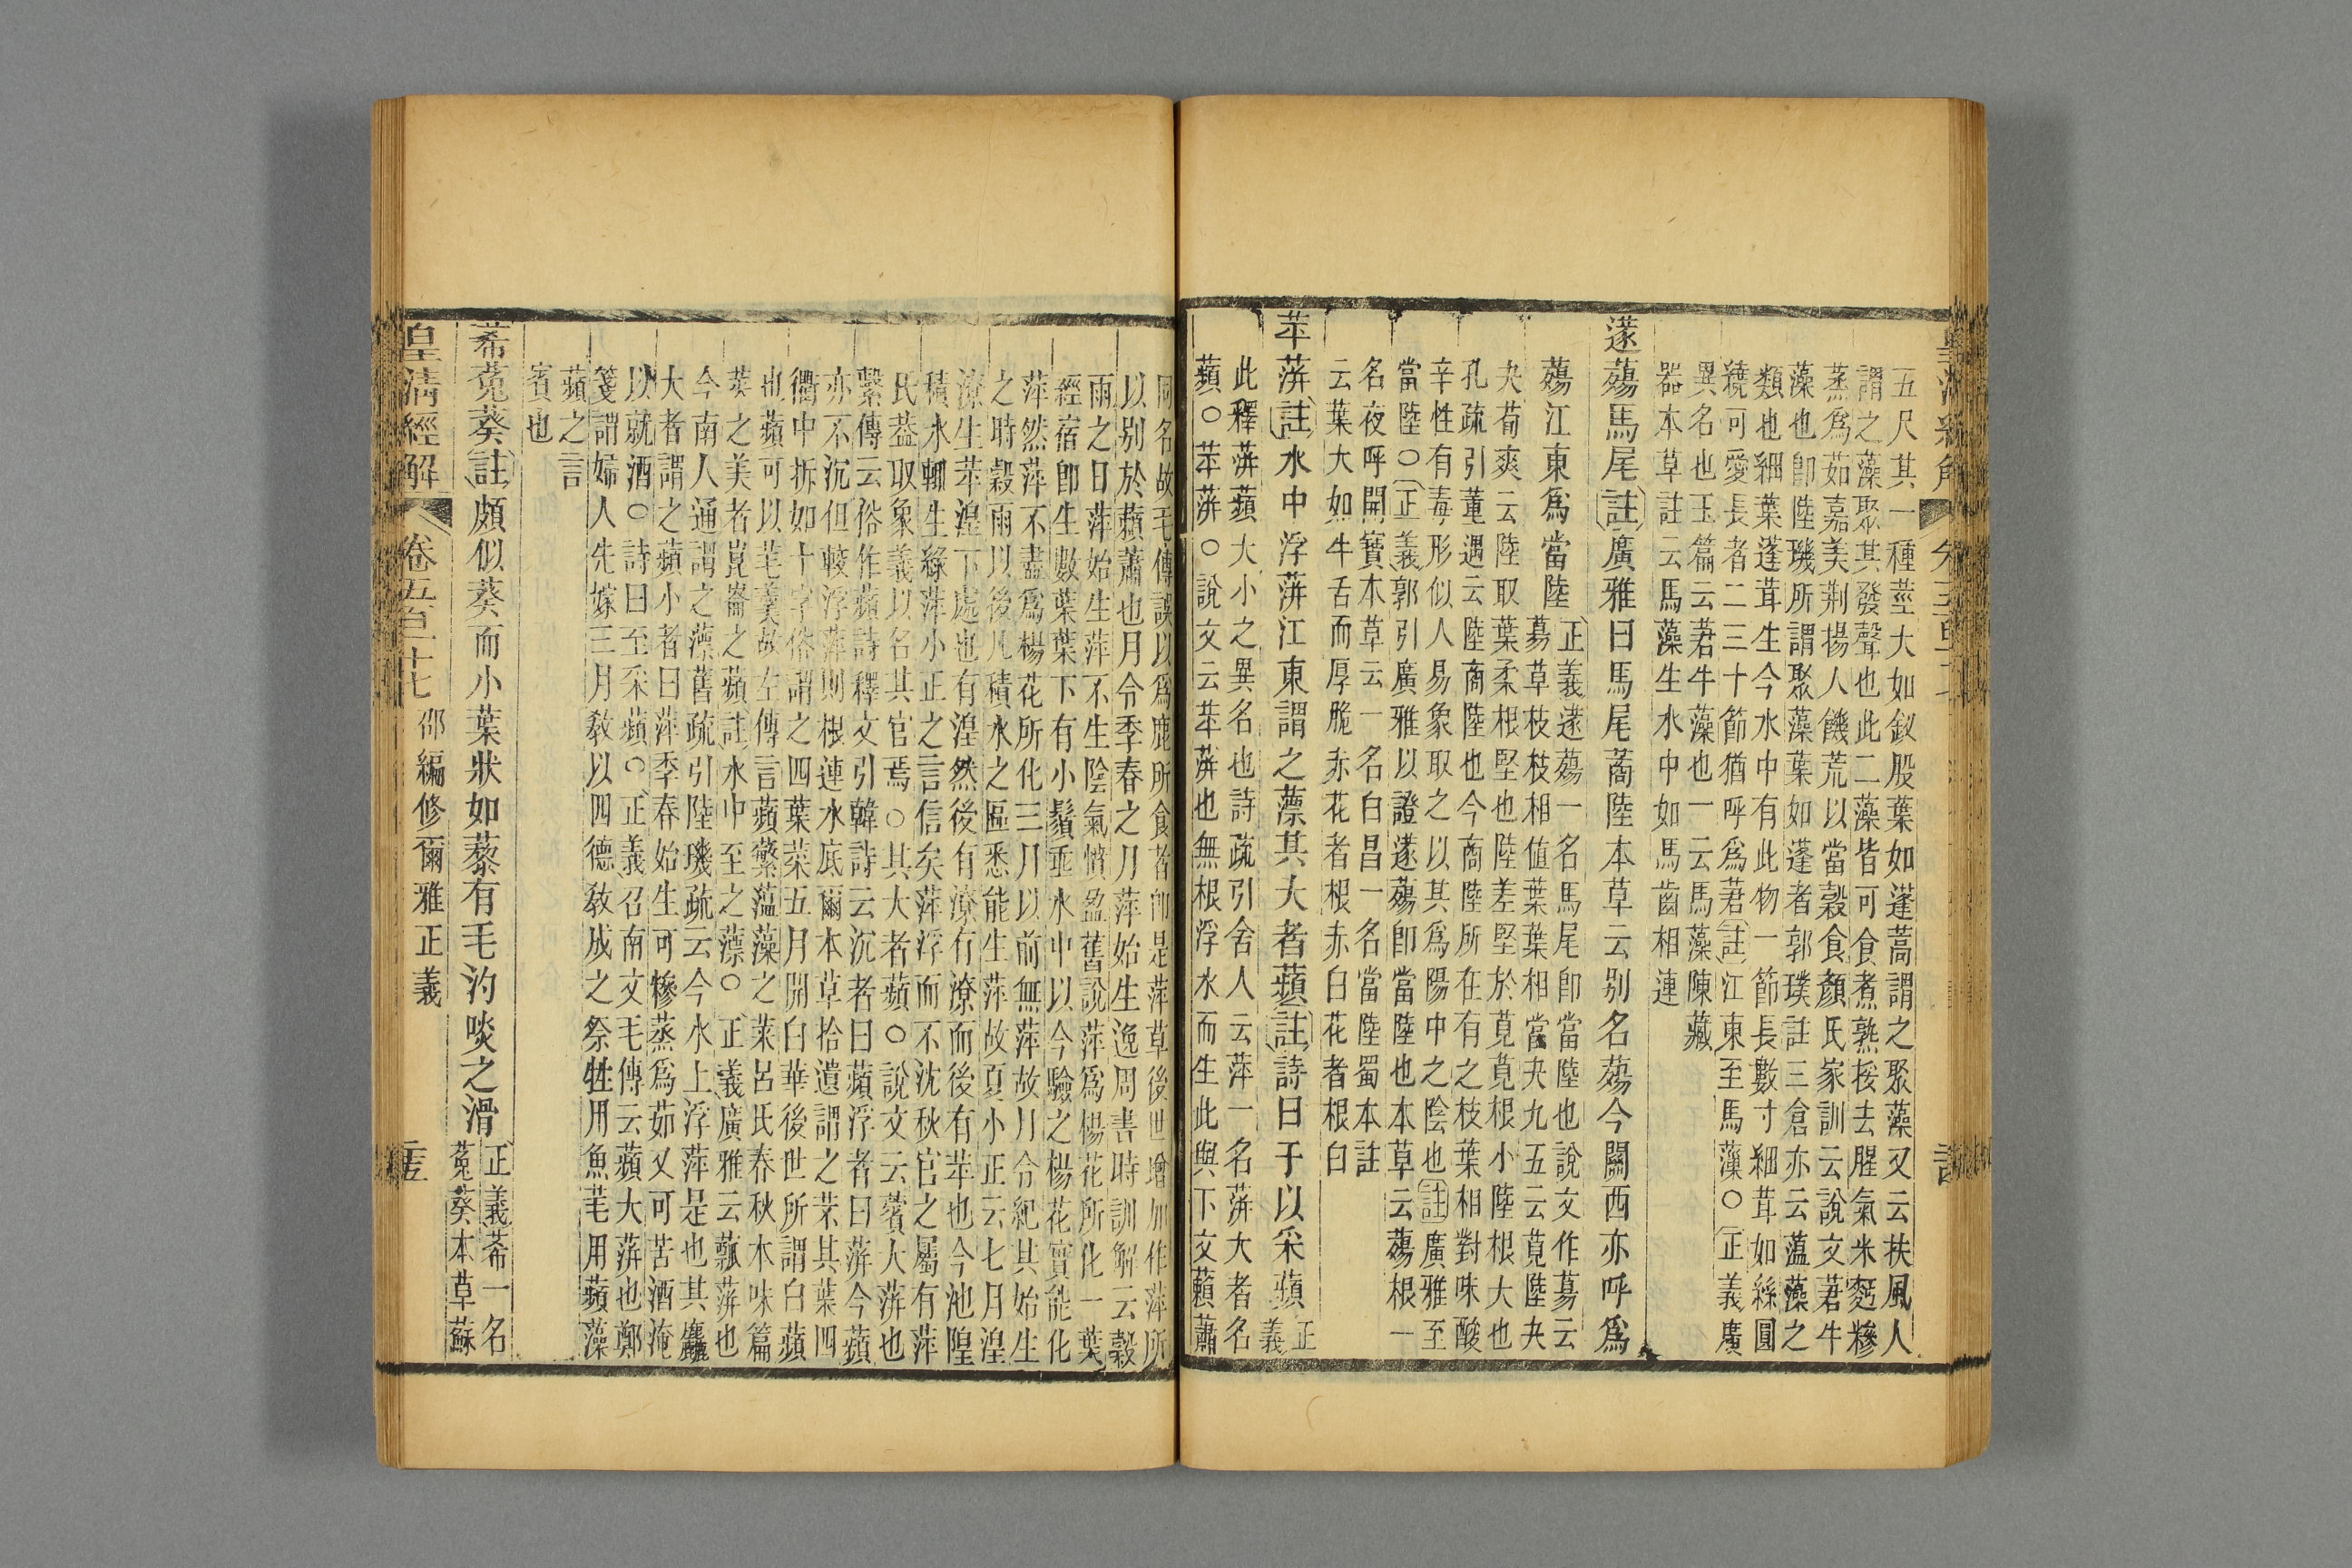 五尺其一種莖大如釵股葉如蓬蒿謂之聚藻又云扶風人
謂之藻聚其發聲也此二藻皆可食煮熟挼去腥氣米麪糝
蒸爲茹嘉美荆揚人饑荒以當穀食顏氏家訓云說文莙牛
藻也卽陸璣所謂聚藻葉如蓬者郭璞註三倉亦云薀藻之
類也細葉蓬茸生今水中有此物一節長數寸細茸如絲圓
繞可愛長者二三十節猶呼爲莙註江東至馬藻○正義廣
異名也玉篇云莙牛藻也一云馬藻陳藏
器本草註云馬藻生水中如馬齒相連
蓫薚馬尾註廣雅曰馬尾蔏陸本草云别名薚今關西亦呼爲
薚江東爲當陸
正義蓫薚一名馬尾卽當陸也說文作募云
募草枝枝相值葉葉相當夬九五云莧陸夬
夬荀爽云陸取葉柔根堅也陸差堅於莧莧根小陸根大也
孔疏引董遇云陸商陸也今商陸所在有之枝葉相對味酸
辛性有毒形似人易象取之以其爲陽中之陰也註廣雅至
當陸○正義郭引廣雅以證蓫薚卽當陸也本草云薚根一
名夜呼開寶本草云一名白昌一名當陸蜀本註
云葉大如牛舌而厚脆赤花者根赤白花者根白
苹蓱註水中浮蓱江東謂之薸其大者蘋註詩曰于以采蘋
正
義
此釋蓱蘋大小之異名也詩疏引舍人云萍一名蓱大者名
蘋○苹蓱○說文云苹蓱也無根浮水而生此與下文藾蕭
同名故毛傳誤以爲鹿所食者卽是萍草後世增加作萍所
以别於藾蕭也月令季春之月萍始生逸周書時訓解云穀
雨之日萍始生萍不生陰氣憤盈舊說萍爲楊花所化一葉
經宿卽生數葉葉下有小鬚垂水中以今驗之楊花實能化
萍然萍不盡爲楊花所化三月以前無萍故月令紀其始生
之時穀雨以後凡積水之區悉能生萍故夏小正云七月湟
潦生苹湟下處也有湟然後有潦有潦而後有苹也今池隍
積水輒生綠萍小正之言信矣萍浮而不沈秋官之屬有萍
氏葢取象義以名其官焉○其大者蘋○說文云薲大蓱也
繫傳云俗作蘋詩釋文引韓詩云沉者曰蘋浮者曰蓱今蘋
亦不沉但較浮萍則根連水底爾本草拾遺謂之芣其葉四
衢中拆如十字俗謂之四葉菜五月開白華後世所謂白蘋
也蘋可以芼羹故左傳言蘋蘩薀藻之菜呂氏春秋本味篇
菜之美者崑崙之蘋註水中至之薸○正義廣雅云藻蓱也
今南人通謂之薸舊疏引陸璣疏云今水上浮萍是也其麤
大者謂之蘋小者曰萍季春始生可糝蒸爲茹又可苦酒淹
以就酒○詩曰至采蘋○正義召南文毛傳云蘋大蓱也鄭
箋謂婦人先嫁三月敎以四德敎成之祭牲用魚芼用蘋藻
蘋之言
賓也
莃菟葵註頗似葵而小葉狀如藜有毛汋啖之滑
正義莃一名
菟葵本草蘇
皇清經解
卷五百一十七
邵編修爾雅正義